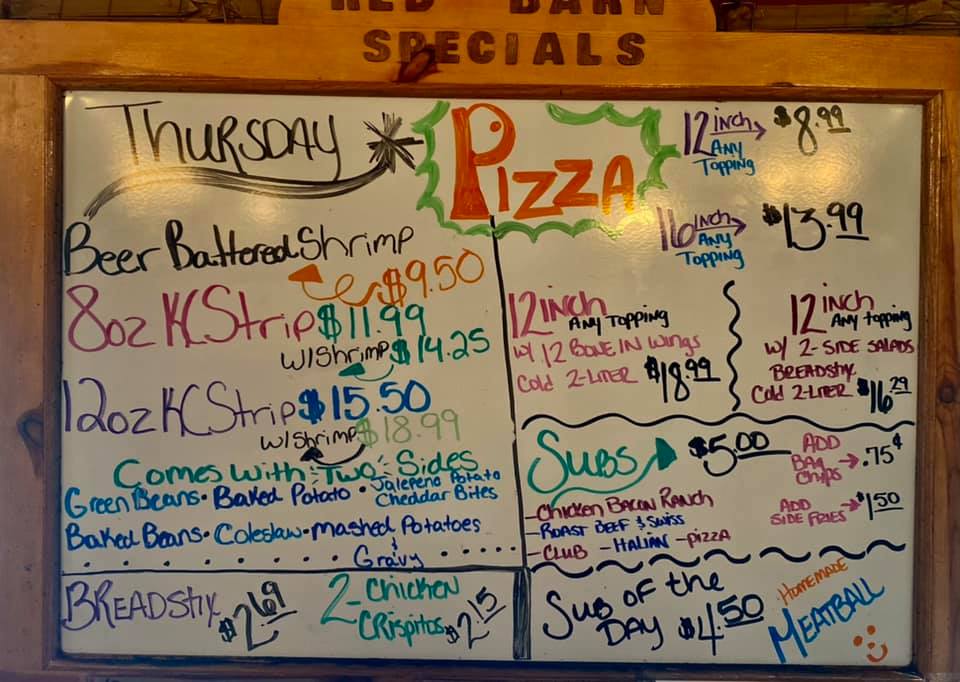 RED BARN
SPECIALS
THURSDAY
Beer Battered Shrimp
$9.50
8oz KC Strip $11.99
W/Shrimp $14.25
12oz KC Strip $15.50
W/Shrimp $18.99
Comes With Two Sides
Green Beans • Baked Potato • Jalepeno Potato
Cheddar Bites
Baked Beans • Coleslaw • mashed Potatoes
&
Gravy
BREADSTIX $2.69
2-Chicken
CRispitos $2.15
PIZZA
12 inch $8.99
ANY
TOPPING
16 inch $13.99
ANY
TOPPING
12 inch
ANY TOPPING
W/ 12 BONE IN WINGS
Cold 2-LITER $18.99
12 inch
ANY topping
W/ 2-SIDE SALADS
BREADSTIX
Cold 2-LITER $16.29
SUBS $5.00
ADD
BAG
Chips .75¢
ADD
SIDE FRIES $1.50
-Chicken BACON RANCH
-ROAST BEEF & SWISS
-CLUB -ITALIAN -PIZZA
SUB OF THE
DAY $4.50
HOMEMADE
MEATBALL